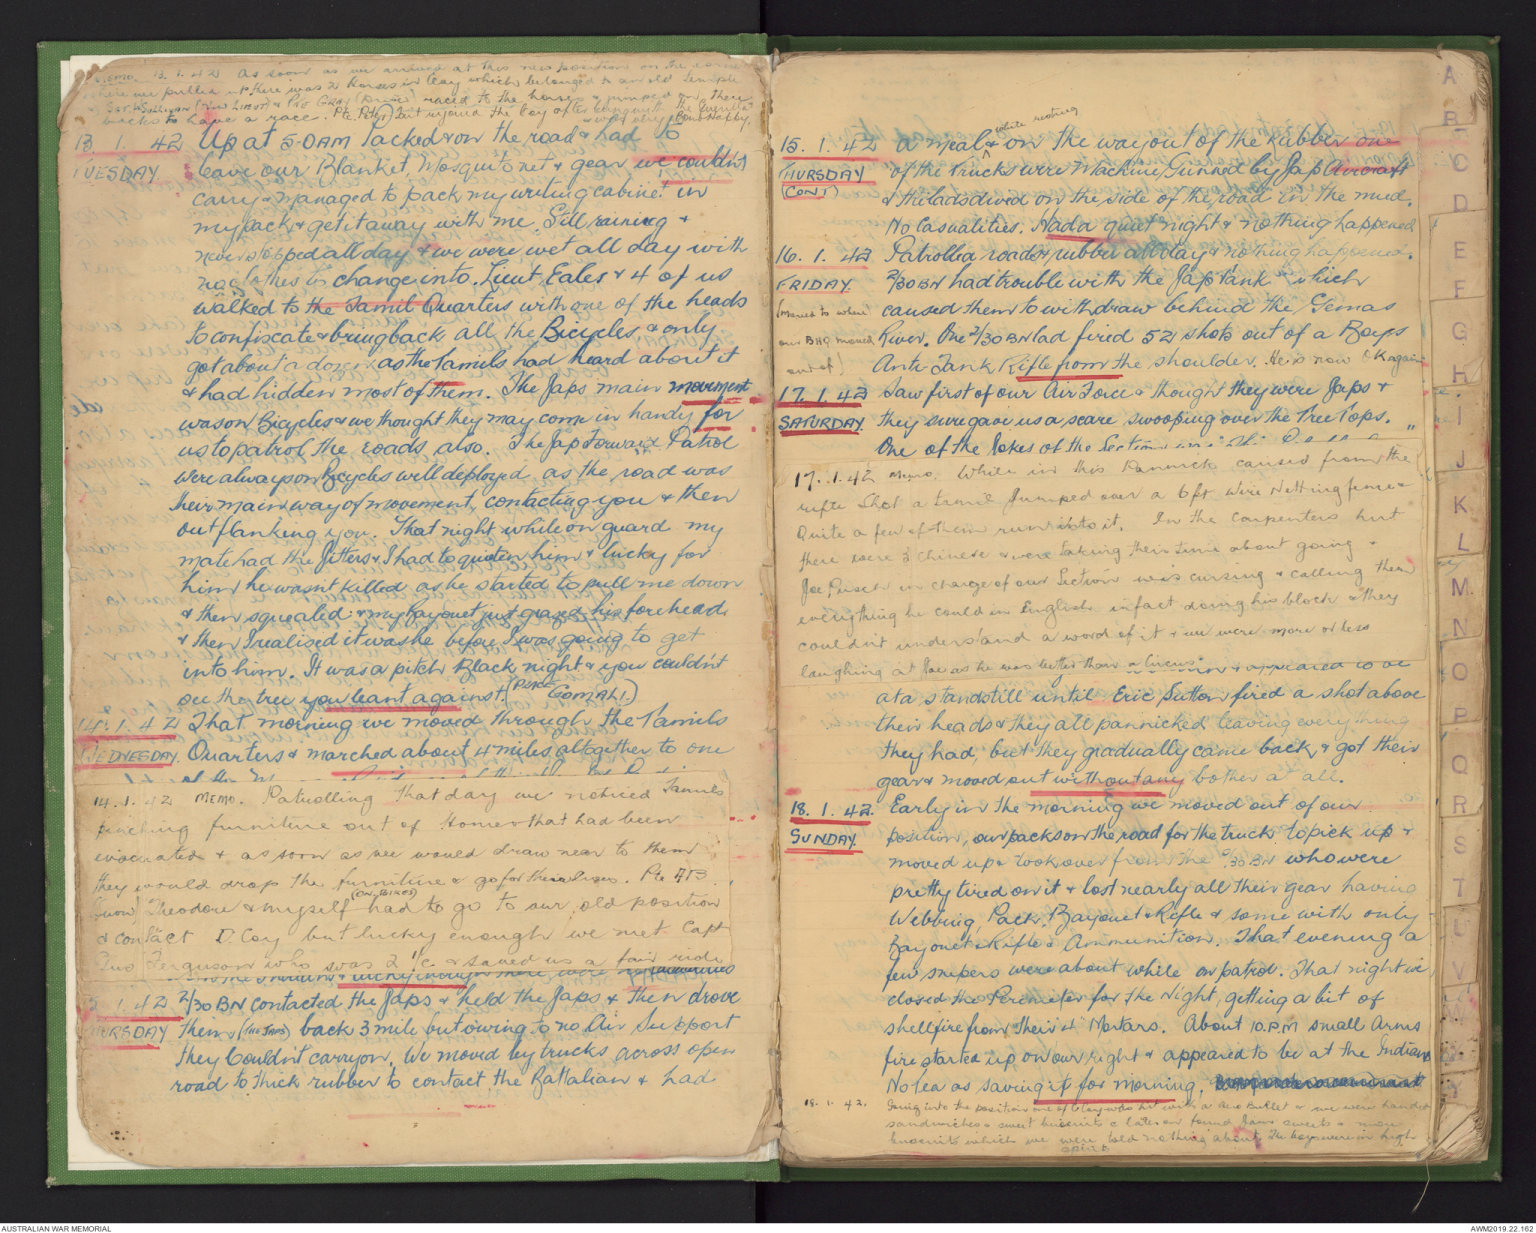 MEMO. 13.1.42 As soon as we arrived at this new position on the
where we pulled up there was 2 horses in Coy which belonged to an old Temple
& Pte GRAY raced to the horses & jumped on their
backs to have a race.
13.1.42 Up at 5.0AM Packed & on the road & had to
TUESDAY leave our Blanket, Mosquito net & gear we couldn't
carry & managed to pack my writing cabinet in
my pack & get it away with me. Still raining &
never stopped all day & we were wet all day with
no clothes to change into. Lieut Eales & 4 of us
walked to the Tamil Quarters with one of the heads
to confiscate & bring back all the Bicycles & only
got about a dozen as the Tamils had heard about it
& had hidden most of them. The Japs main movement
was on Bicycles & we thought they may come in handy for
us to patrol the roads also. The Jap Forward Patrol
were always on Bicycles well deployed as the road was
their main way of movement, contacting you & then
out flanking you. That night while on guard my
mate had the Jitters & I had to quieten him & lucky for
him he wasn't killed as he started to pull me down
& then squealed & my Bayonet just grazed his forehead
& then I realised it was he before I was going to get
into him. It was a pitch Black night & you couldn't
see the tree you leant against. (Pte GOMALI.)
14.1.42 That morning we moved through the Tamils
WEDNESDAY. Quarters & marched about 4 miles altogether to one
14.1.42 MEMO. Patrolling that day we noticed Tamils
pinching furniture out of Homes that had been
evacuated & as soon as we would draw near to them
they would drop the furniture & go for their lives. Pte AJB
(Snow) Theodore & myself (ON BIKES) had to go to our old position
& contact D. Coy but lucky enough we met Capt
Ferguson who was 2 I/c & saved us a fair ride
15.1.42 2/30 BN contacted the Japs & held the Japs & then drove
THURSDAY them (THE JAPS) back 3 mile but owing to no Air Support
they Couldn't carry on. We moved by trucks across open
road to thick rubber to contact the Battalion & had
15.1.42 a meal & while resting on the way out of the Rubber one
THURSDAY of the trucks were Machine Gunned by Jap Aircraft
(CONT) & the lads dived on the side of the road in the mud.
No Casualities. Had a quiet night & nothing happened
16.1.42 Patrolled roads & rubber all day & nothing happened.
FRIDAY 2/30 BN had trouble with the Jap Tank which
(Moved to where caused them to withdraw behind the Gemas
our BHQ moved River. One 2/30 BN lad fired 52 shots out of a Boys
out of) Anti Tank Rifle from the shoulder. He is now OK again
17.1.42 Saw first of our Air Force & thought they were Japs &
SATURDAY. they sure gave us a scare swooping over the Tree Tops.
One of the Jokes of the Section
17.1.42 Memo. While in this Pannick caused from the
rifle Shot a Tamil Jumped over a 6ft Wire Netting fence
Quite a few of them run into it. In the Carpenters hut
there were 3 Chinese & were taking their time about going &
Joe in charge of our Section was cursing & calling them
everything he could in English infact doing his block & they
couldn't understand a word of it & we were more or less
laughing at Joe as he was better than a Circus.
at a standstill until Eric Sutton fired a shot above
their heads & they all pannicked leaving everything
they had, but they gradually came back & got their
gear & moved out without any bother at all.
18.1.42. Early in the morning we moved out of our
SUNDAY position, our packs on the road for the trucks to pick up &
moved up & took over from the 2/30 BN who were
pretty tired on it & lost nearly all their gear having
Webbing, Pack, Bayonet & Rifle & some with only
Bayonet & Rifle & Ammunition. That evening a
few snipers were about while on patrol. That night we
closed the Perimeter for the Night, getting a bit of
shellfire from their 4" Mortars. About 10.P.M small Arms
fire started up on our right & appeared to be at the Indians
No tea as saving it for morning.
18.1.42. Going into the position one of Coy was hit with a Bullet & we were handed
sandwiches & sweet biscuits & later on found Jam sweets & more
biscuits which we were told nothing about. The boys were in high
spirits
AUSTRALIAN WAR MEMORIAL
AWM2019.22.162
A
B
C
D
E
F
G
H
I
J
K
L
M
N
O
P
Q
R
S
T
U
V
W
Y